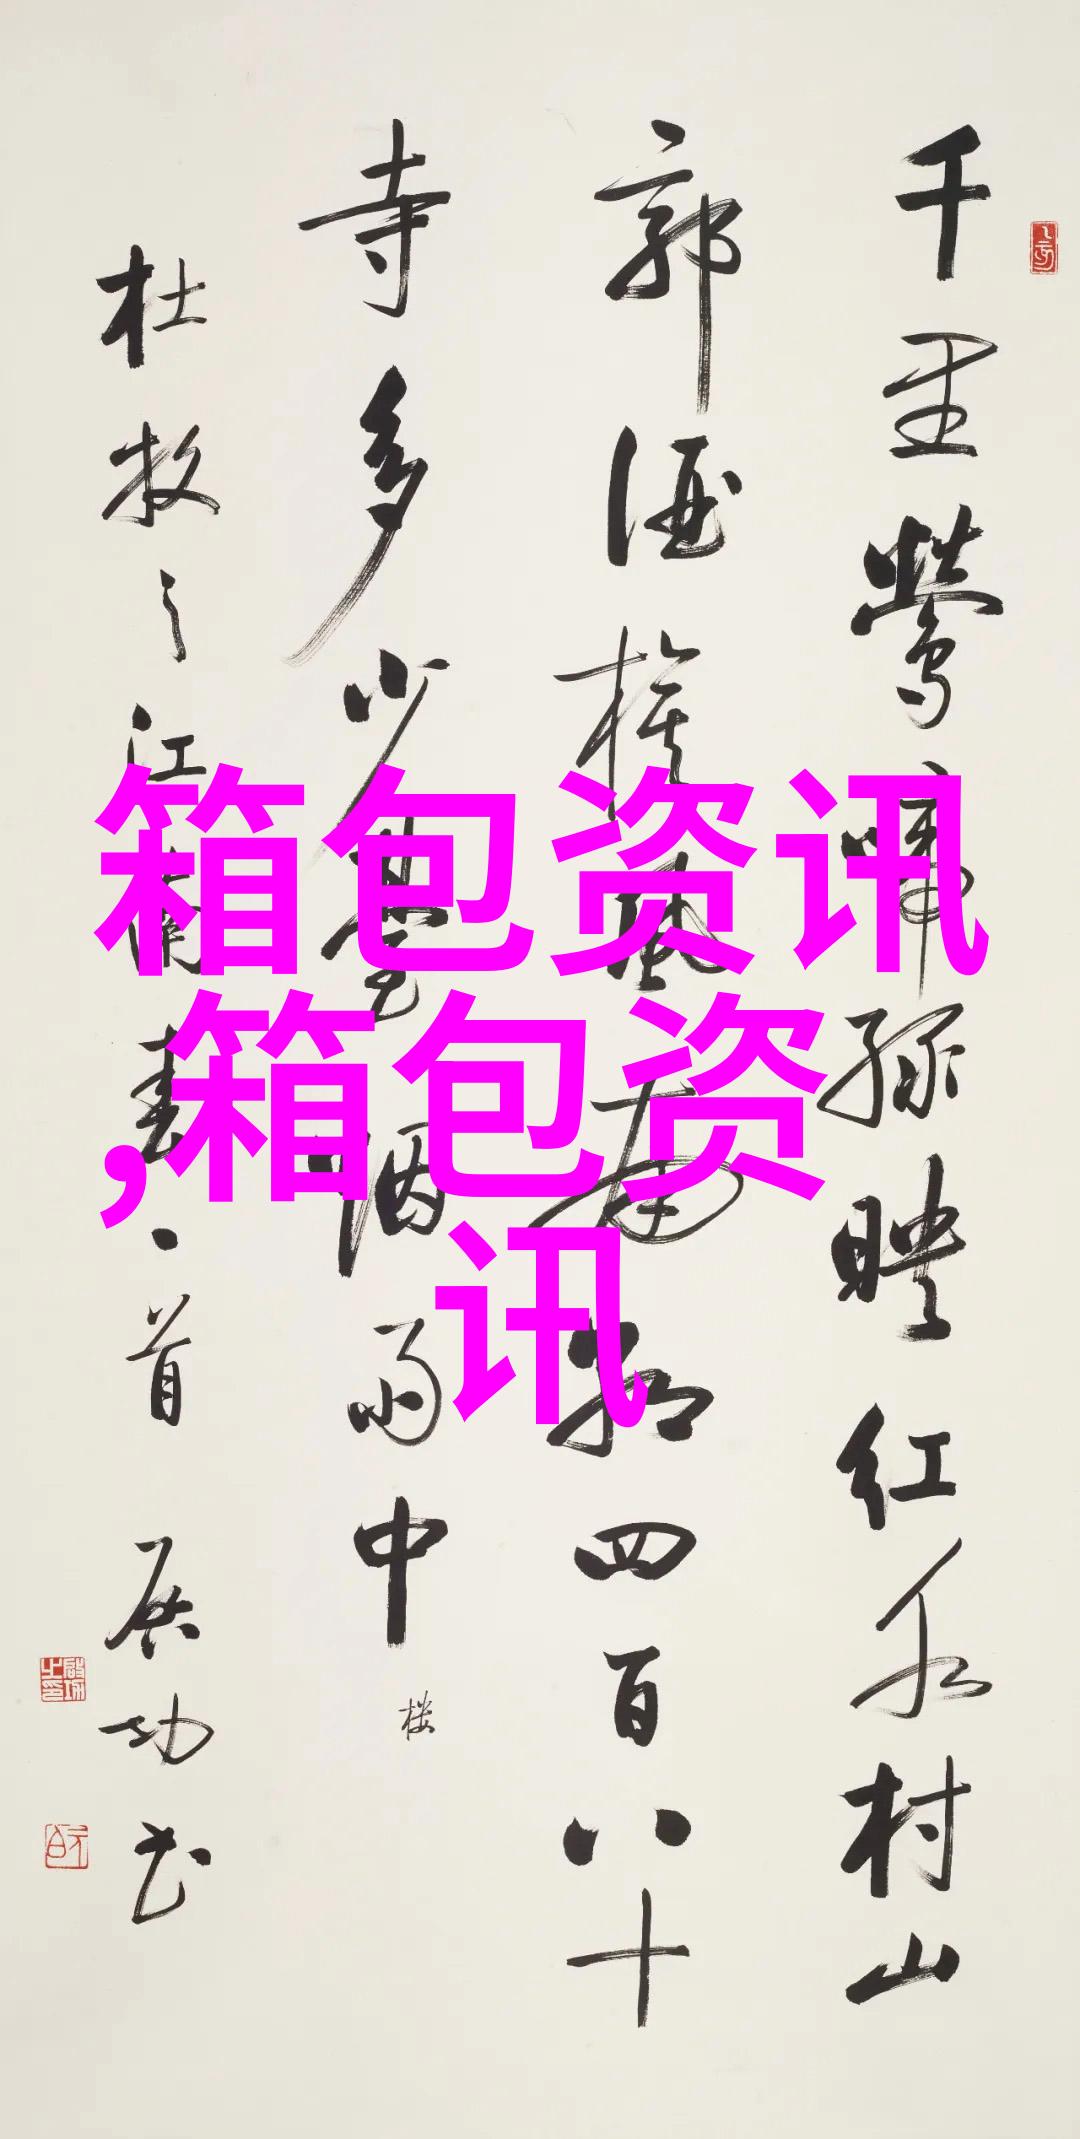 千里鶯啼綠映紅水村山
郭酒旗風南朝四百八十
寺多少臺烟雨中
楼
杜牧之江南春一首 启功书
箱包资讯
,箱包资
讯